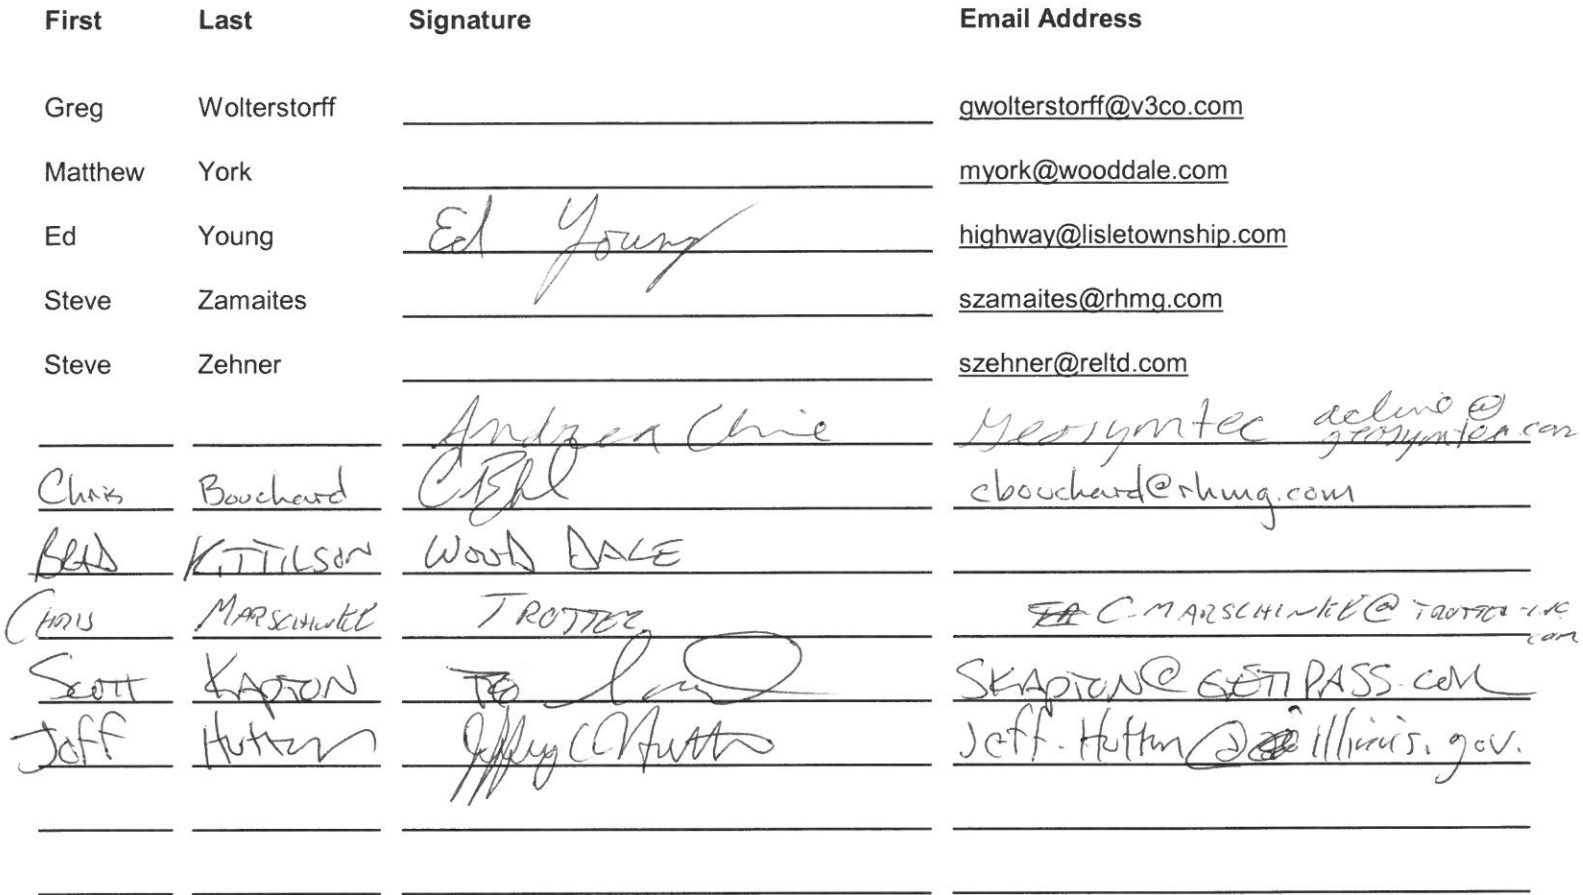 First Last Signature Email Address
Greg Wolterstorff gwolterstorff@v3co.com
Matthew York myork@wooddale.com
Ed Young Ed Young highway@lisletownship.com
Steve Zamaites szamaites@rhmg.com
Steve Zehner szehner@reltd.com
Andrea Cline Geosyntec acline@
geosyntec.com
Chris Bouchard cbouchard@rhmg.com
BRAD KITTILSON WOOD DALE
CHRIS MARSCHINKE TROTTER C-MARSCHINKE@TROTTER-INC
.com
SCOTT KAPTON SKAPTON@GETIPASS.COM
Jeff Hutton Jeffrey C Hutton Jeff.Hutton@illinois.gov.